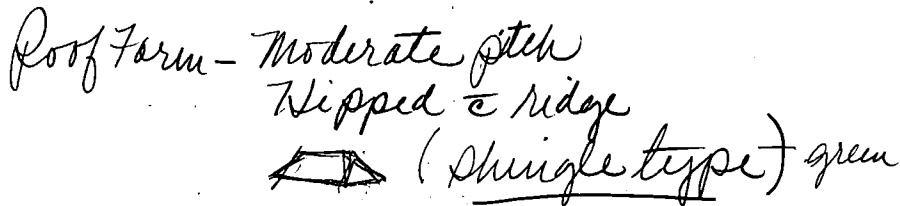 Roof Form - Moderate ptch
Hipped c̄ ridge
(Shingle type) green